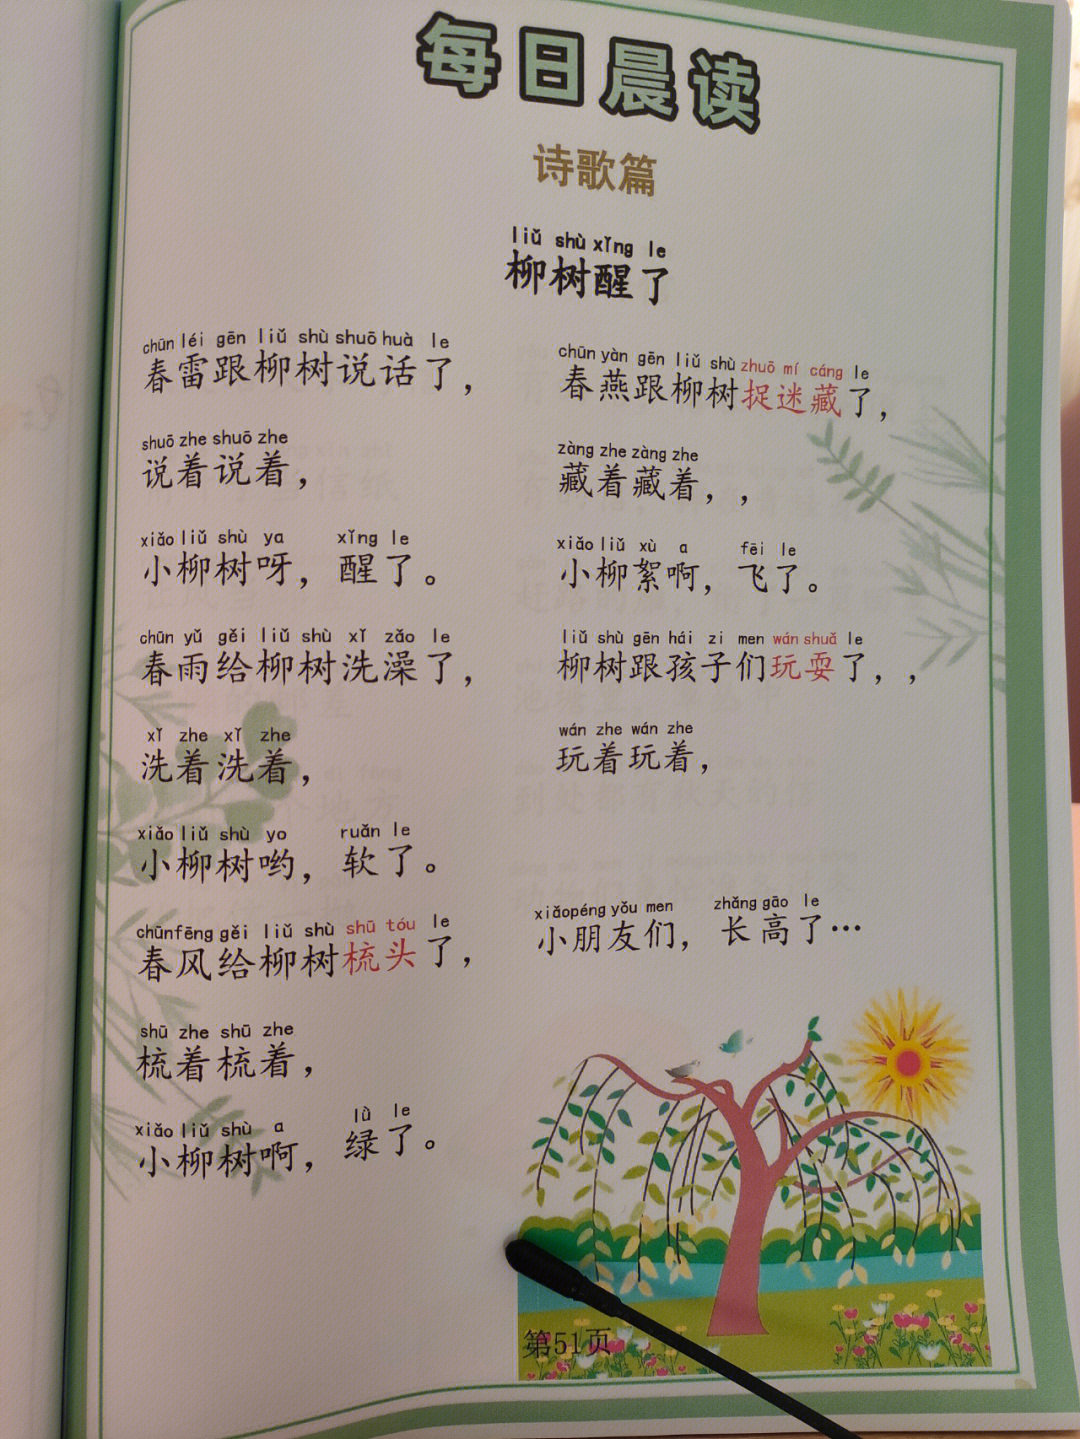 每日晨读
诗歌篇
liǔ shù xǐng le
柳树醒了
chūn léi gēn liǔ shù shuō huà le
春雷跟柳树说话了，
shuō zhe shuō zhe
说着说着，
xiǎo liǔ shù ya xǐng le
小柳树呀，醒了。
chūn yǔ gěi liǔ shù xǐ zǎo le
春雨给柳树洗澡了，
xǐ zhe xǐ zhe
洗着洗着，
xiǎo liǔ shù yo ruǎn le
小柳树哟，软了。
chūn fēng gěi liǔ shù shū tóu le
春风给柳树梳头了，
shū zhe shū zhe
梳着梳着，
xiǎo liǔ shù a lǜ le
小柳树啊，绿了。
chūn yàn gēn liǔ shù zhuō mí cáng le
春燕跟柳树捉迷藏了，
zàng zhe zàng zhe
藏着藏着，，
xiǎo liǔ xù a fēi le
小柳絮啊，飞了。
liǔ shù gēn hái zi men wán shuǎ le
柳树跟孩子们玩耍了，，
wán zhe wán zhe
玩着玩着，
xiǎo péng yǒu men zhǎng gāo le
小朋友们，长高了…
第51页